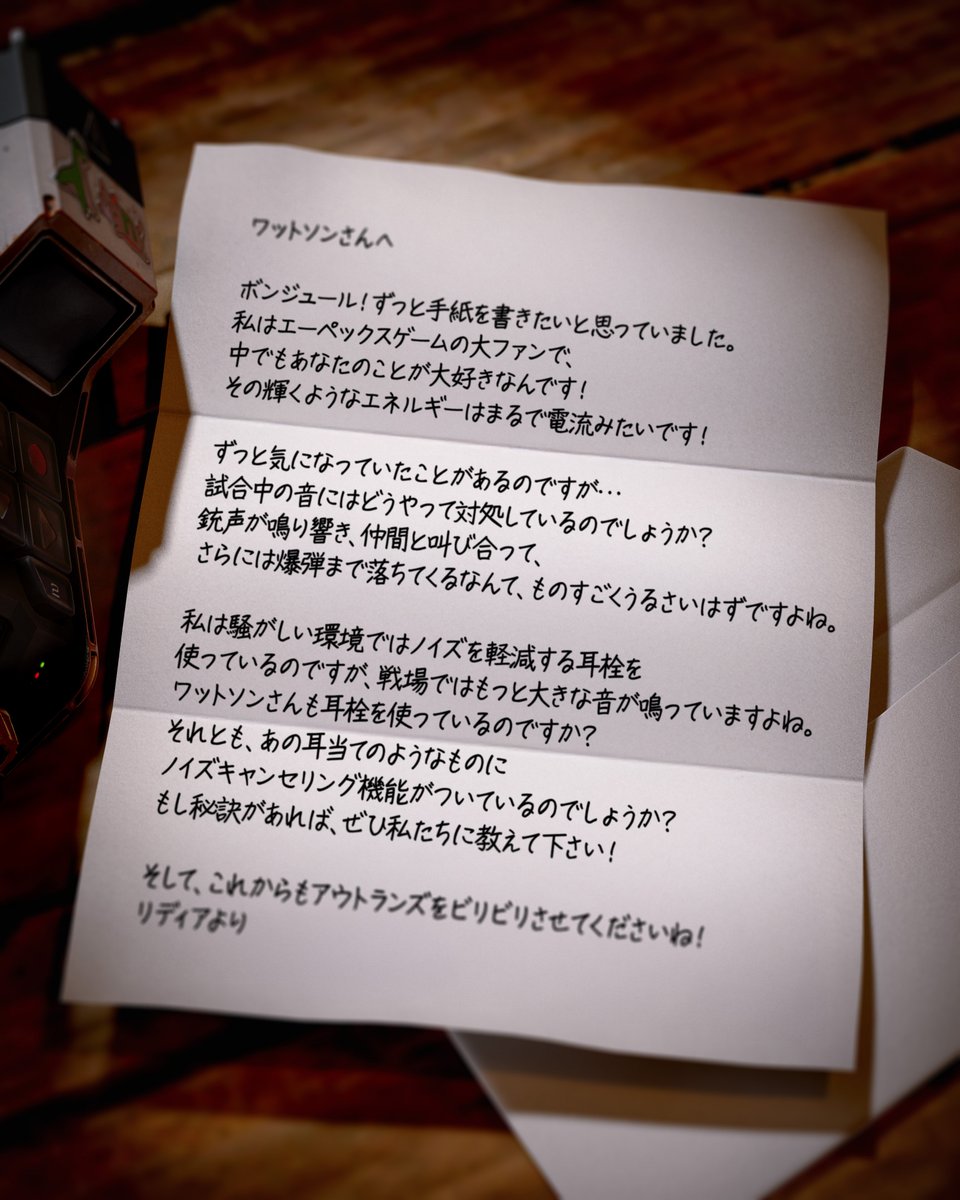 ワットソンさんへ
ボンジュール！ずっと手紙を書きたいと思っていました。
私はエーペックスゲームの大ファンで、
中でもあなたのことが大好きなんです！
その輝くようなエネルギーはまるで電流みたいです！
ずっと気になっていたことがあるのですが…
試合中の音にはどうやって対処しているのでしょうか？
銃声が鳴り響き、仲間と叫び合って、
さらには爆弾まで落ちてくるなんて、ものすごくうるさいはずですよね。
私は騒がしい環境ではノイズを軽減する耳栓を
使っているのですが、戦場ではもっと大きな音が鳴っていますよね。
ワットソンさんも耳栓を使っているのですか？
それとも、あの耳当てのようなものに
ノイズキャンセリング機能がついているのでしょうか？
もし秘訣があれば、ぜひ私たちに教えて下さい！
そして、これからもアウトランズをビリビリさせてくださいね！
リディアより